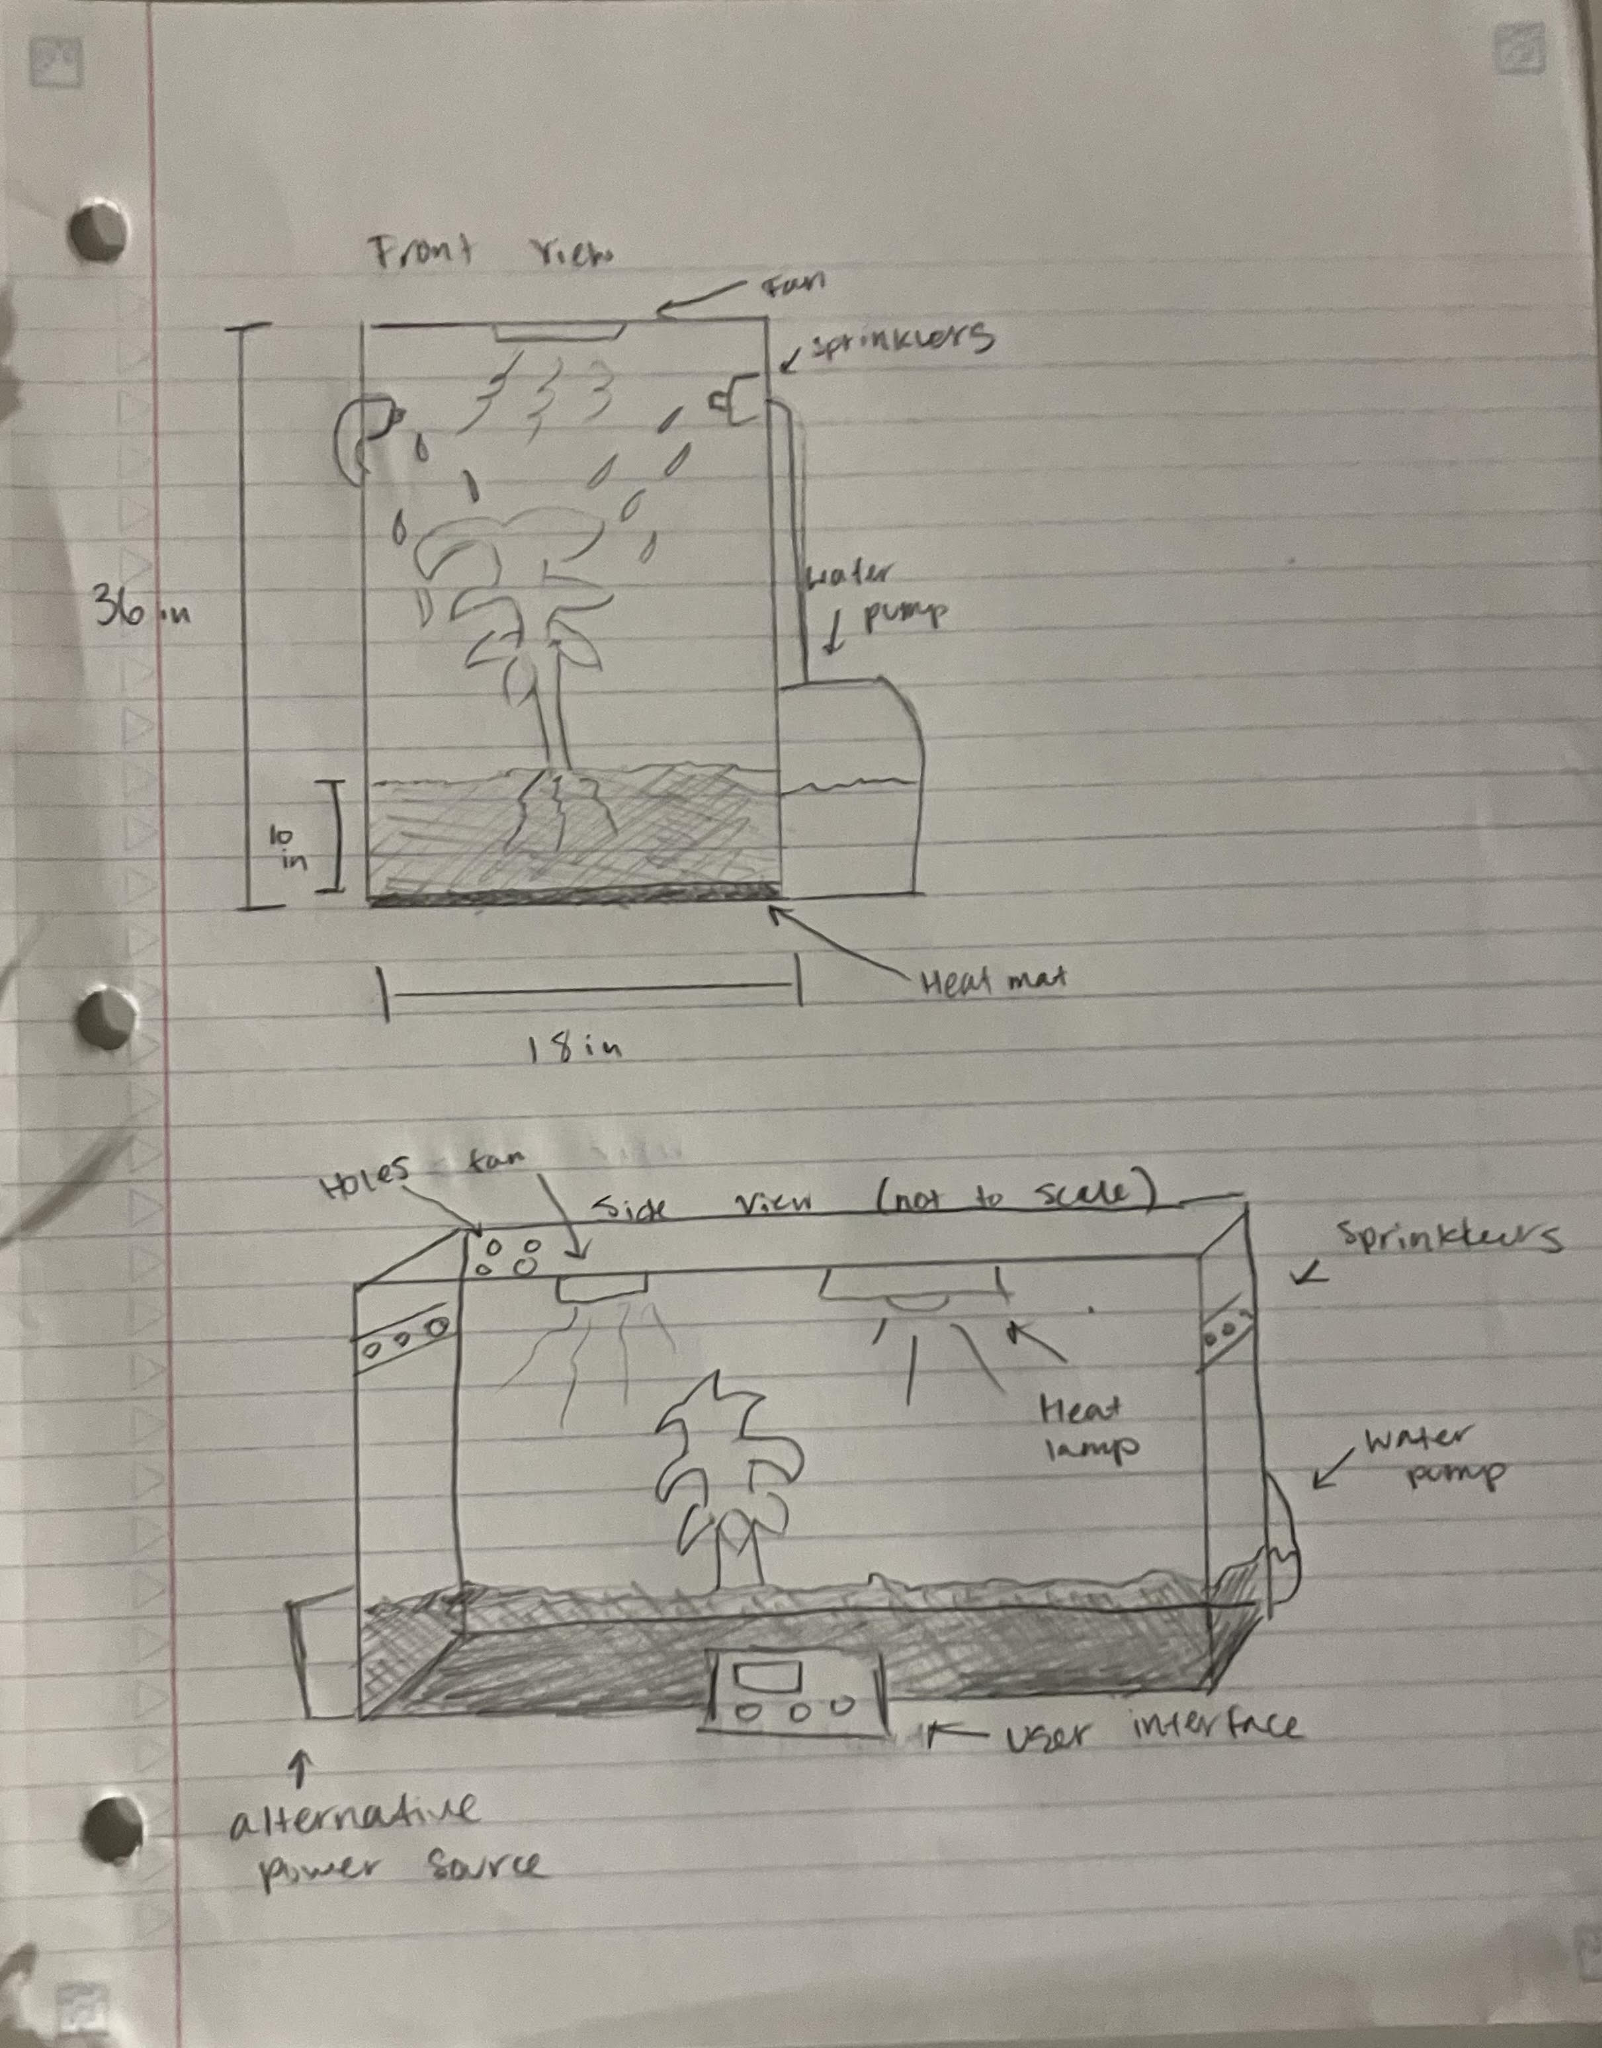 Front view
Fan
sprinklers
36 in
water
pump
10
in
Heat mat
18 in
Holes
fan
Side view (not to scale)
sprinklers
Heat
lamp
water
pump
user interface
alternative
power source